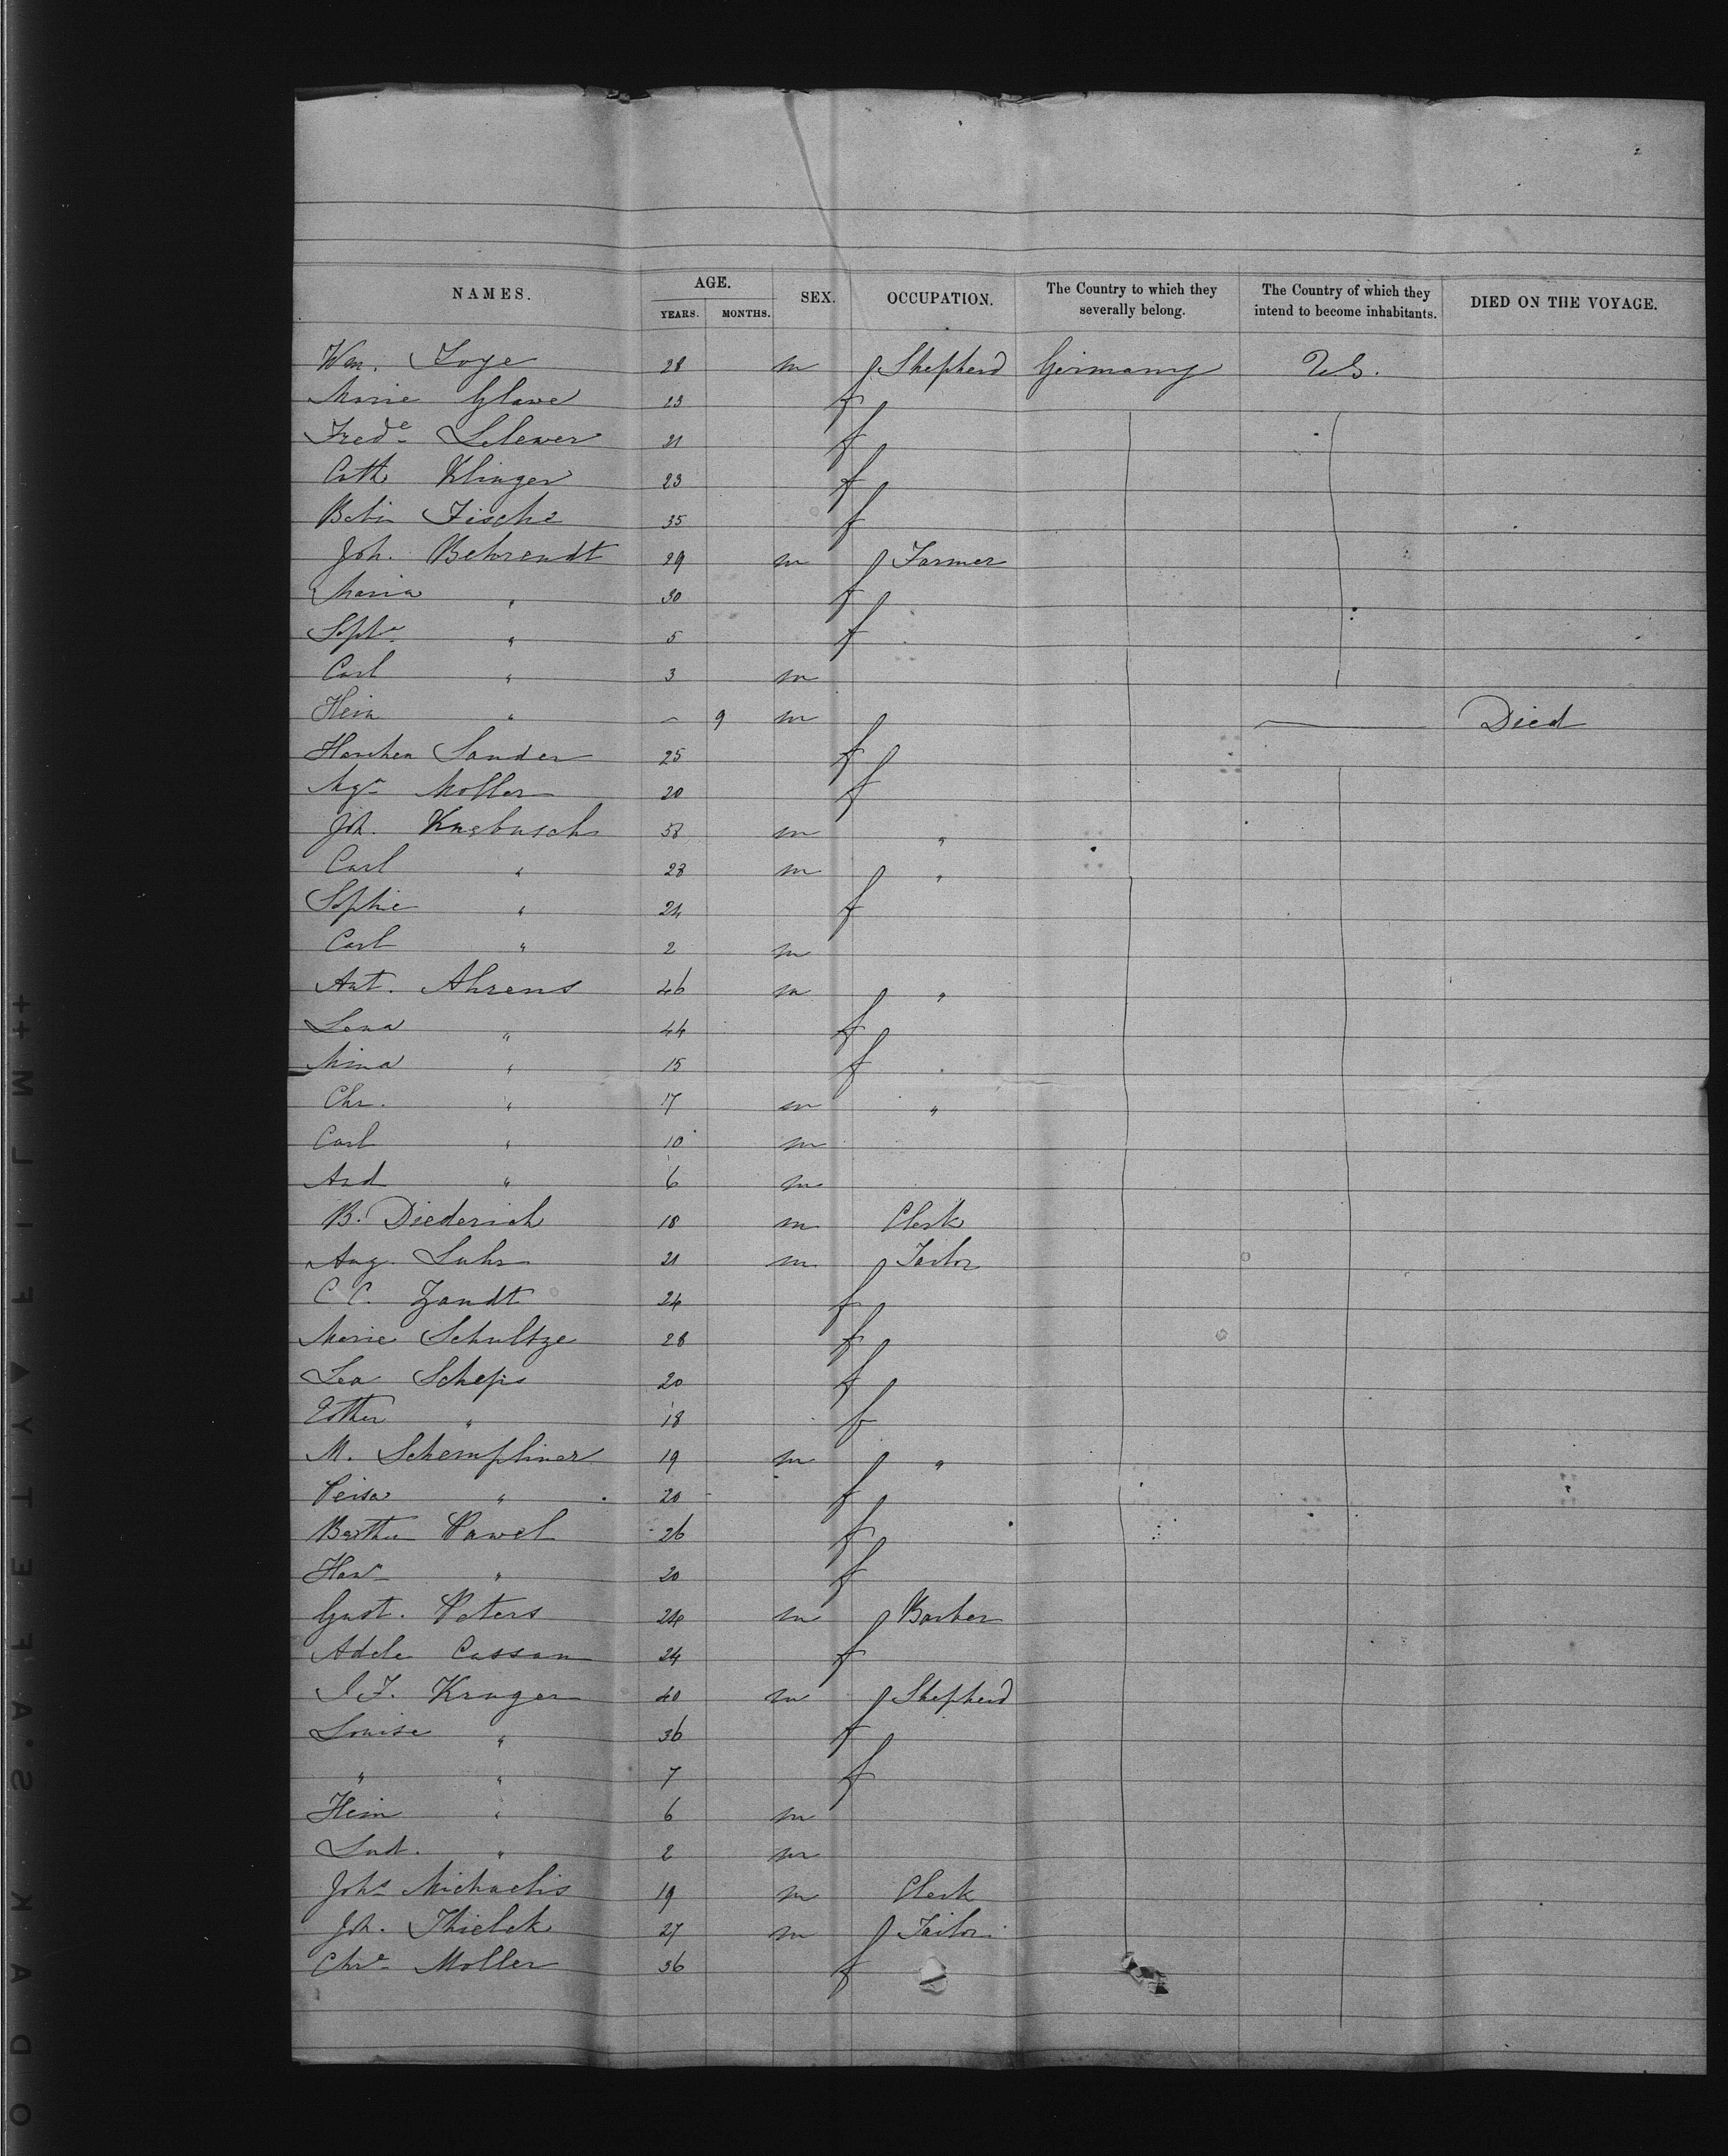 NAMES. AGE. SEX. OCCUPATION. The Country to which they severally belong. The Country of which they intend to become inhabitants. DIED ON THE VOYAGE.
YEARS. MONTHS.
Wm. Foye 28 m Shepherd Germany U.S.
Marie Glawe 23 f
Fredᵉ Lelewer 21 f
Cath Klinger 23 f
Babi Fische 35 f
Joh. Behrendt 29 m Farmer
Maria " 30 f
Sophᵉ " 5 f
Carl " 3 m
Hein " - 9 m Died
Hanchen Sander 25 f
Moller 20 f
Joh. Knebusch 58 m "
Carl " 28 m "
Sophie " 24 f
Carl " 2 m
Ant. Ahrens 46 m "
Lena " 44 f
Mina " 15 f
Chr. " 17 m "
Carl " 10 m
And " 6 m
B. Diederich 18 m Clerk
Aug. Luhr 21 m Tailor
C.C. Zandt 24 f
Marie Schultze 28 f
Lea Scheps 20 f
Esther " 18 f
M. Schempliner 19 m "
Peisa " 20 f
Bertha Pawel 26 f
Han " 20 f
Gust. Peters 24 m Barber
Adele Cassan 24 f
J.F. Kruger 40 m Shepherd
Louise " 36 f
" " 7 f
Hein " 6 m
Lud. " 2 m
Johˢ Michaelis 19 m Clerk
Joh. Thielck 27 m Tailor.
Chrᵉ Moller 36 f
OO DAK SAFETY FILM ++